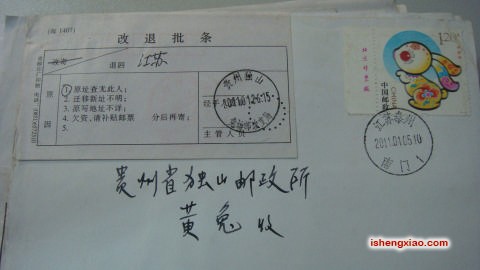 (改1407)
改退批条
改寄
退回 江苏
①原址查无此人;
2.迁移新址不明;
3.原写地址不详;
4.欠资,请补贴邮票 分后再寄;
5.
经手
主管人员
贵州独山
120
分
中国邮政
CHINA
江苏泰州
2011.01.05.10
南门1
贵州省独山邮政所
黄兔 收
ishengxiao.com